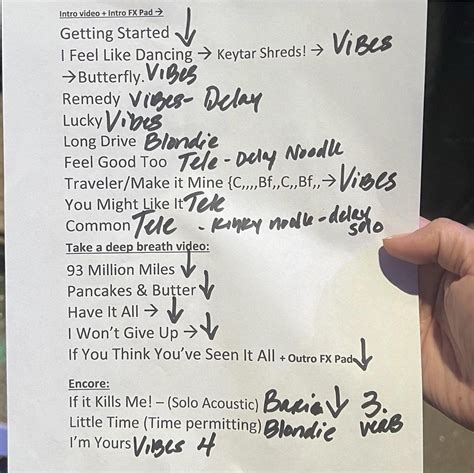 Intro video + Intro FX Pad → ↓
Getting Started
I Feel Like Dancing → Keytar Shreds! → Vibes
→Butterfly. Vibes
Remedy Vibes - Delay
Lucky Vibes
Long Drive Blondie
Feel Good Too Tele - Delay Noodle
Traveler/Make it Mine {C,,,,Bf,,C,,Bf,,→ Vibes
You Might Like It Tele
Common Tele - Kinky noodle - delay solo
Take a deep breath video:
93 Million Miles ↓
Pancakes & Butter ↓
Have It All → ↓
I Won't Give Up → ↓
If You Think You've Seen It All + Outro FX Pad ↓
Encore:
If it Kills Me! – (Solo Acoustic) ↓ 3.
Little Time (Time permitting) Blondie verb
I'm Yours Vibes 4